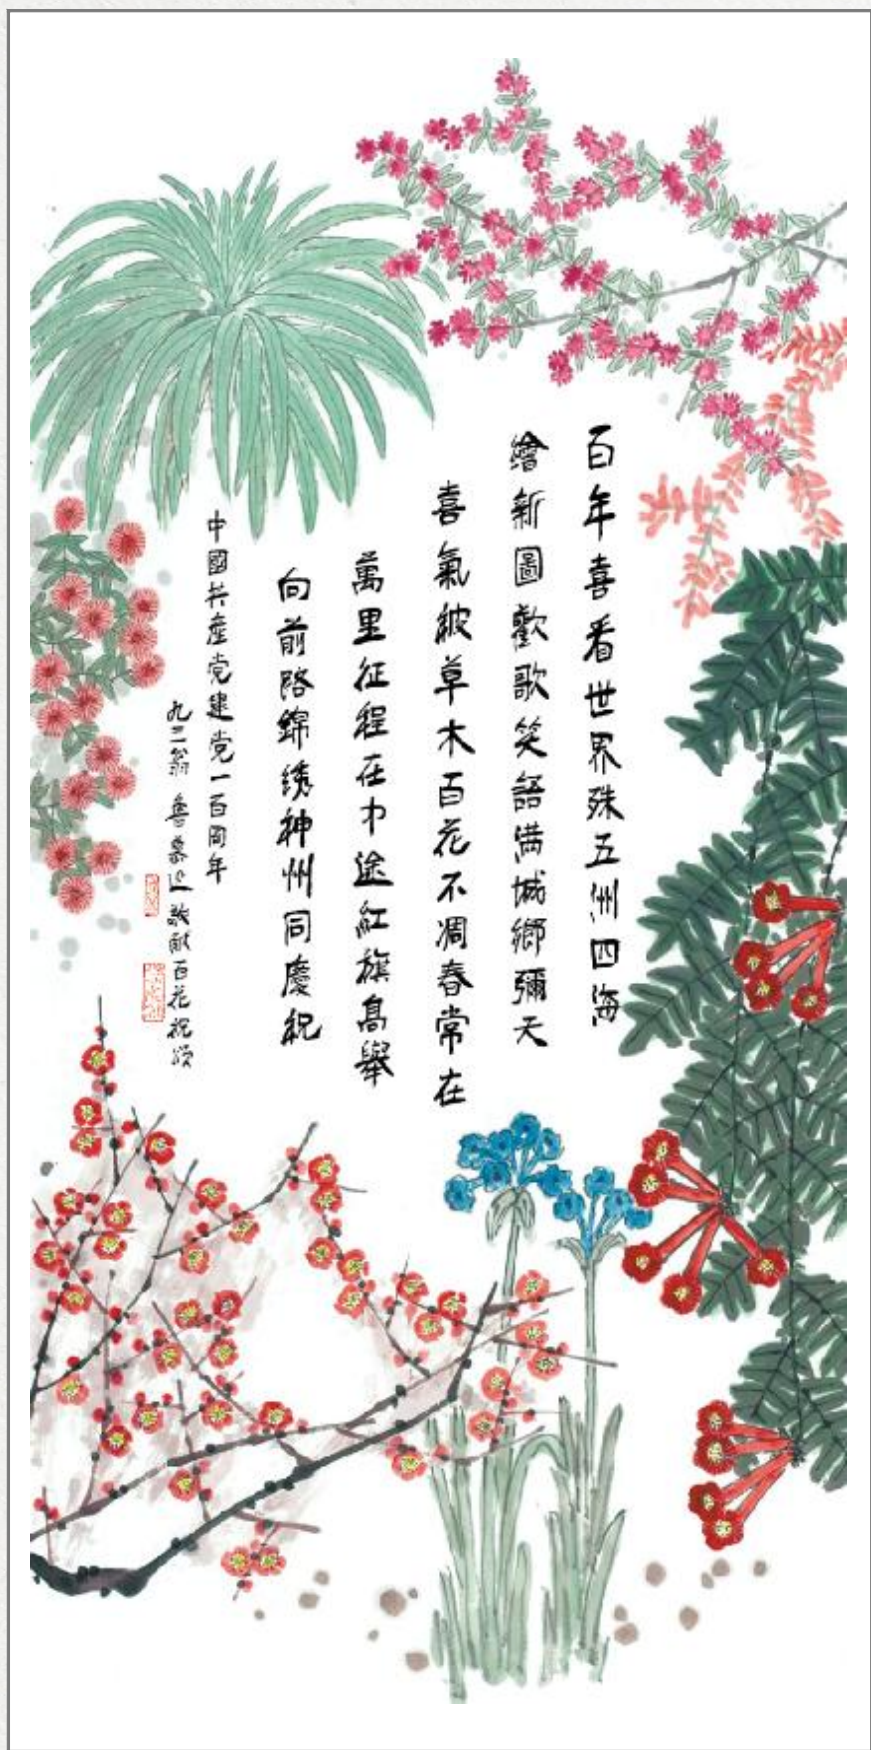 百年喜看世界殊五洲四海
繪新圖歡歌笑語满城鄉彌天
喜氣被草木百花不凋春常在
萬里征程在中途紅旗高舉
向前路錦绣神州同慶祝
中國共產党建党一百周年
九二翁 魯慕迅敬献百花祝颂